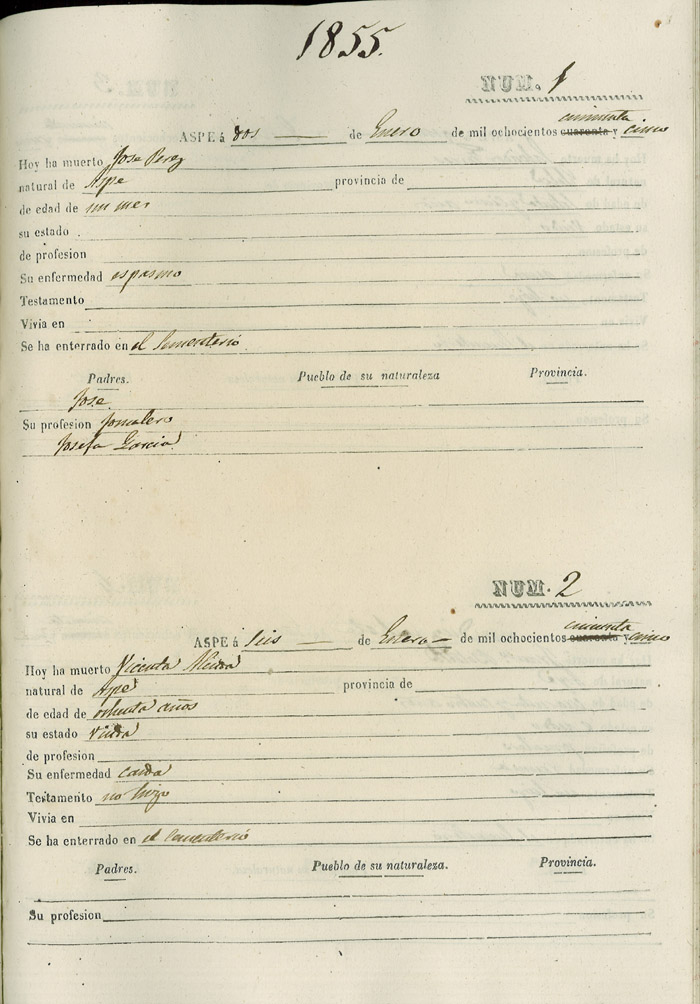 1855.
NUM. 1
cincuenta
ASPE á dos de Enero de mil ochocientos cuarenta y cinco
Hoy ha muerto Jose Perez
natural de Aspe provincia de
de edad de un mes
su estado
de profesion
Su enfermedad espasmo
Testamento
Vivia en
Se ha enterrado en el Sementerio
Padres. Pueblo de su naturaleza Provincia.
Jose
Su profesion Jornalero
Josefa Garcia
NUM. 2
cincuenta
ASPE á seis de Enero de mil ochocientos cuarenta y cinco
Hoy ha muerto Vicenta
natural de Aspe provincia de
de edad de ochenta años
su estado viuda
de profesion
Su enfermedad caida
Testamento no hizo
Vivia en
Se ha enterrado en el Cementerio
Padres. Pueblo de su naturaleza. Provincia.
Su profesion